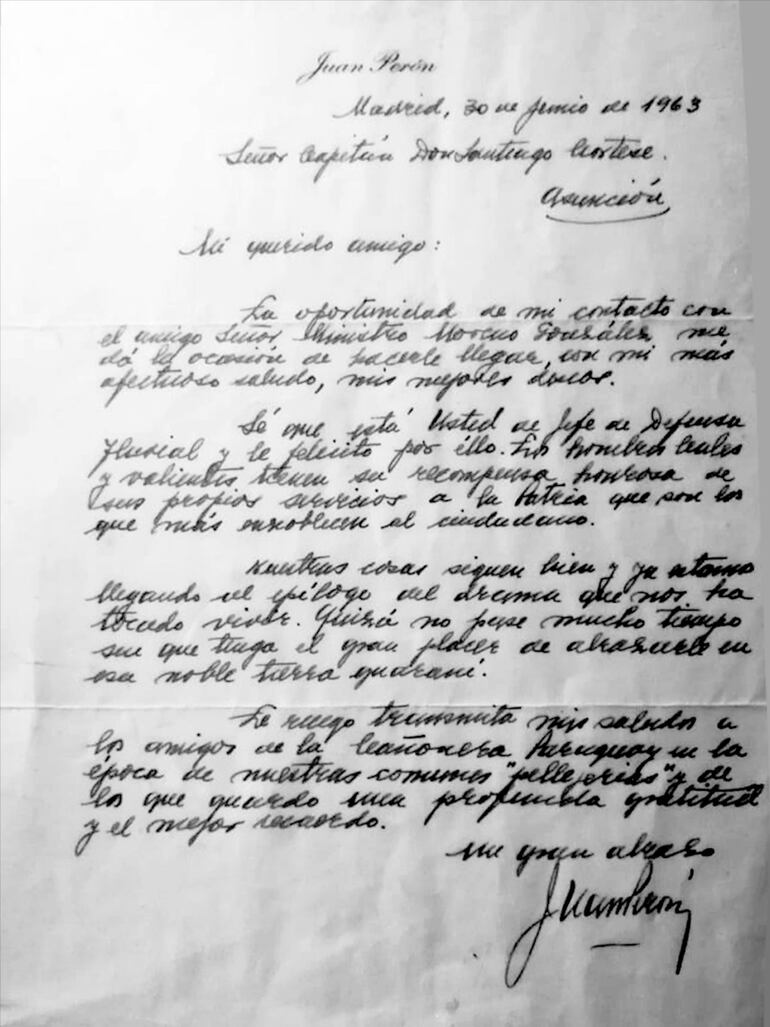 Juan Perón
Madrid, 30 de Junio de 1963
Señor Capitán Don Santiago Cortese.
Asunción
Mi querido amigo:
La oportunidad de mi contacto con
el amigo Señor Ministro Moreno González, me
dá la ocasión de hacerle llegar, con mi más
afectuoso saludo, mis mejores deseos.
Sé que está Usted de Jefe de Defensa
Fluvial y le felicito por éllo. Los hombres leales
y valientes tienen su recompensa honrosa de
sus propios servicios a la Patria que son los
que más ennoblecen al ciudadano.
Nuestras cosas siguen bien y ya estamos
llegando al epílogo del drama que nos ha
tocado vivir. Quizá no pase mucho tiempo
sin que tenga el gran placer de abrazarle en
esa noble tierra guaraní.
Le ruego transmita mis saludos a
los amigos de la Cañonera Paraguay en la
época de nuestras comunes "pellejerias" y de
los que guardo una profunda gratitud
y el mejor recuerdo.
Un gran abrazo
Juan Perón